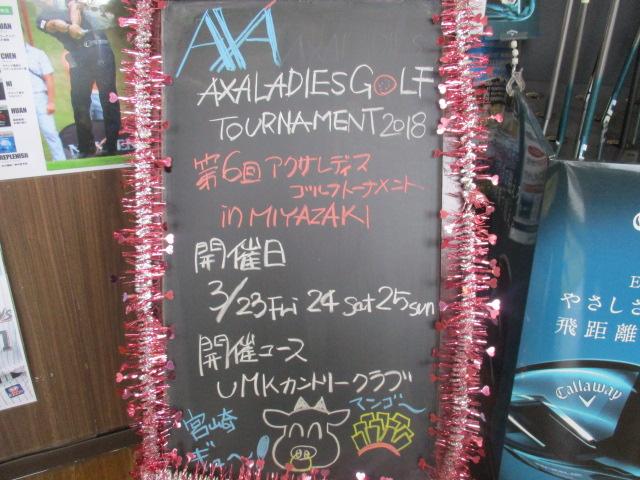 AXA
AXA LADIES GOLF
TOURNAMENT 2018
第6回 アクサレディス
ゴルフトーナメント
in MIYAZAKI
開催日
3/23 Fri 24 Sat 25 sun
開催コース
UMKカントリークラブ
宮崎
ギュ〜
マンゴ〜
UAN
CHEN
NI
HUAN
REPLENISH
やさしさ
飛距離
Callaway